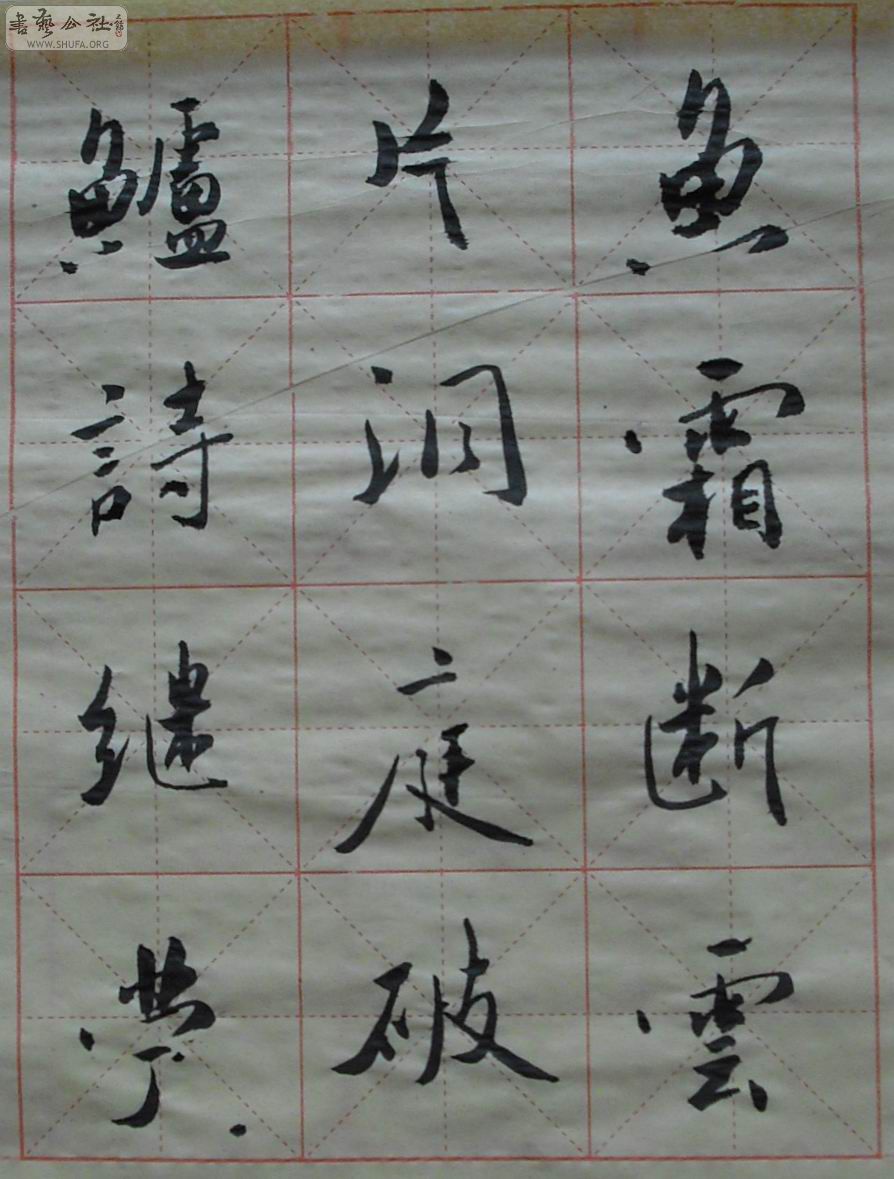 書藝公社
WWW.SHUFA.ORG
魚霜断雲
片洞庭破
鱸詩继苧